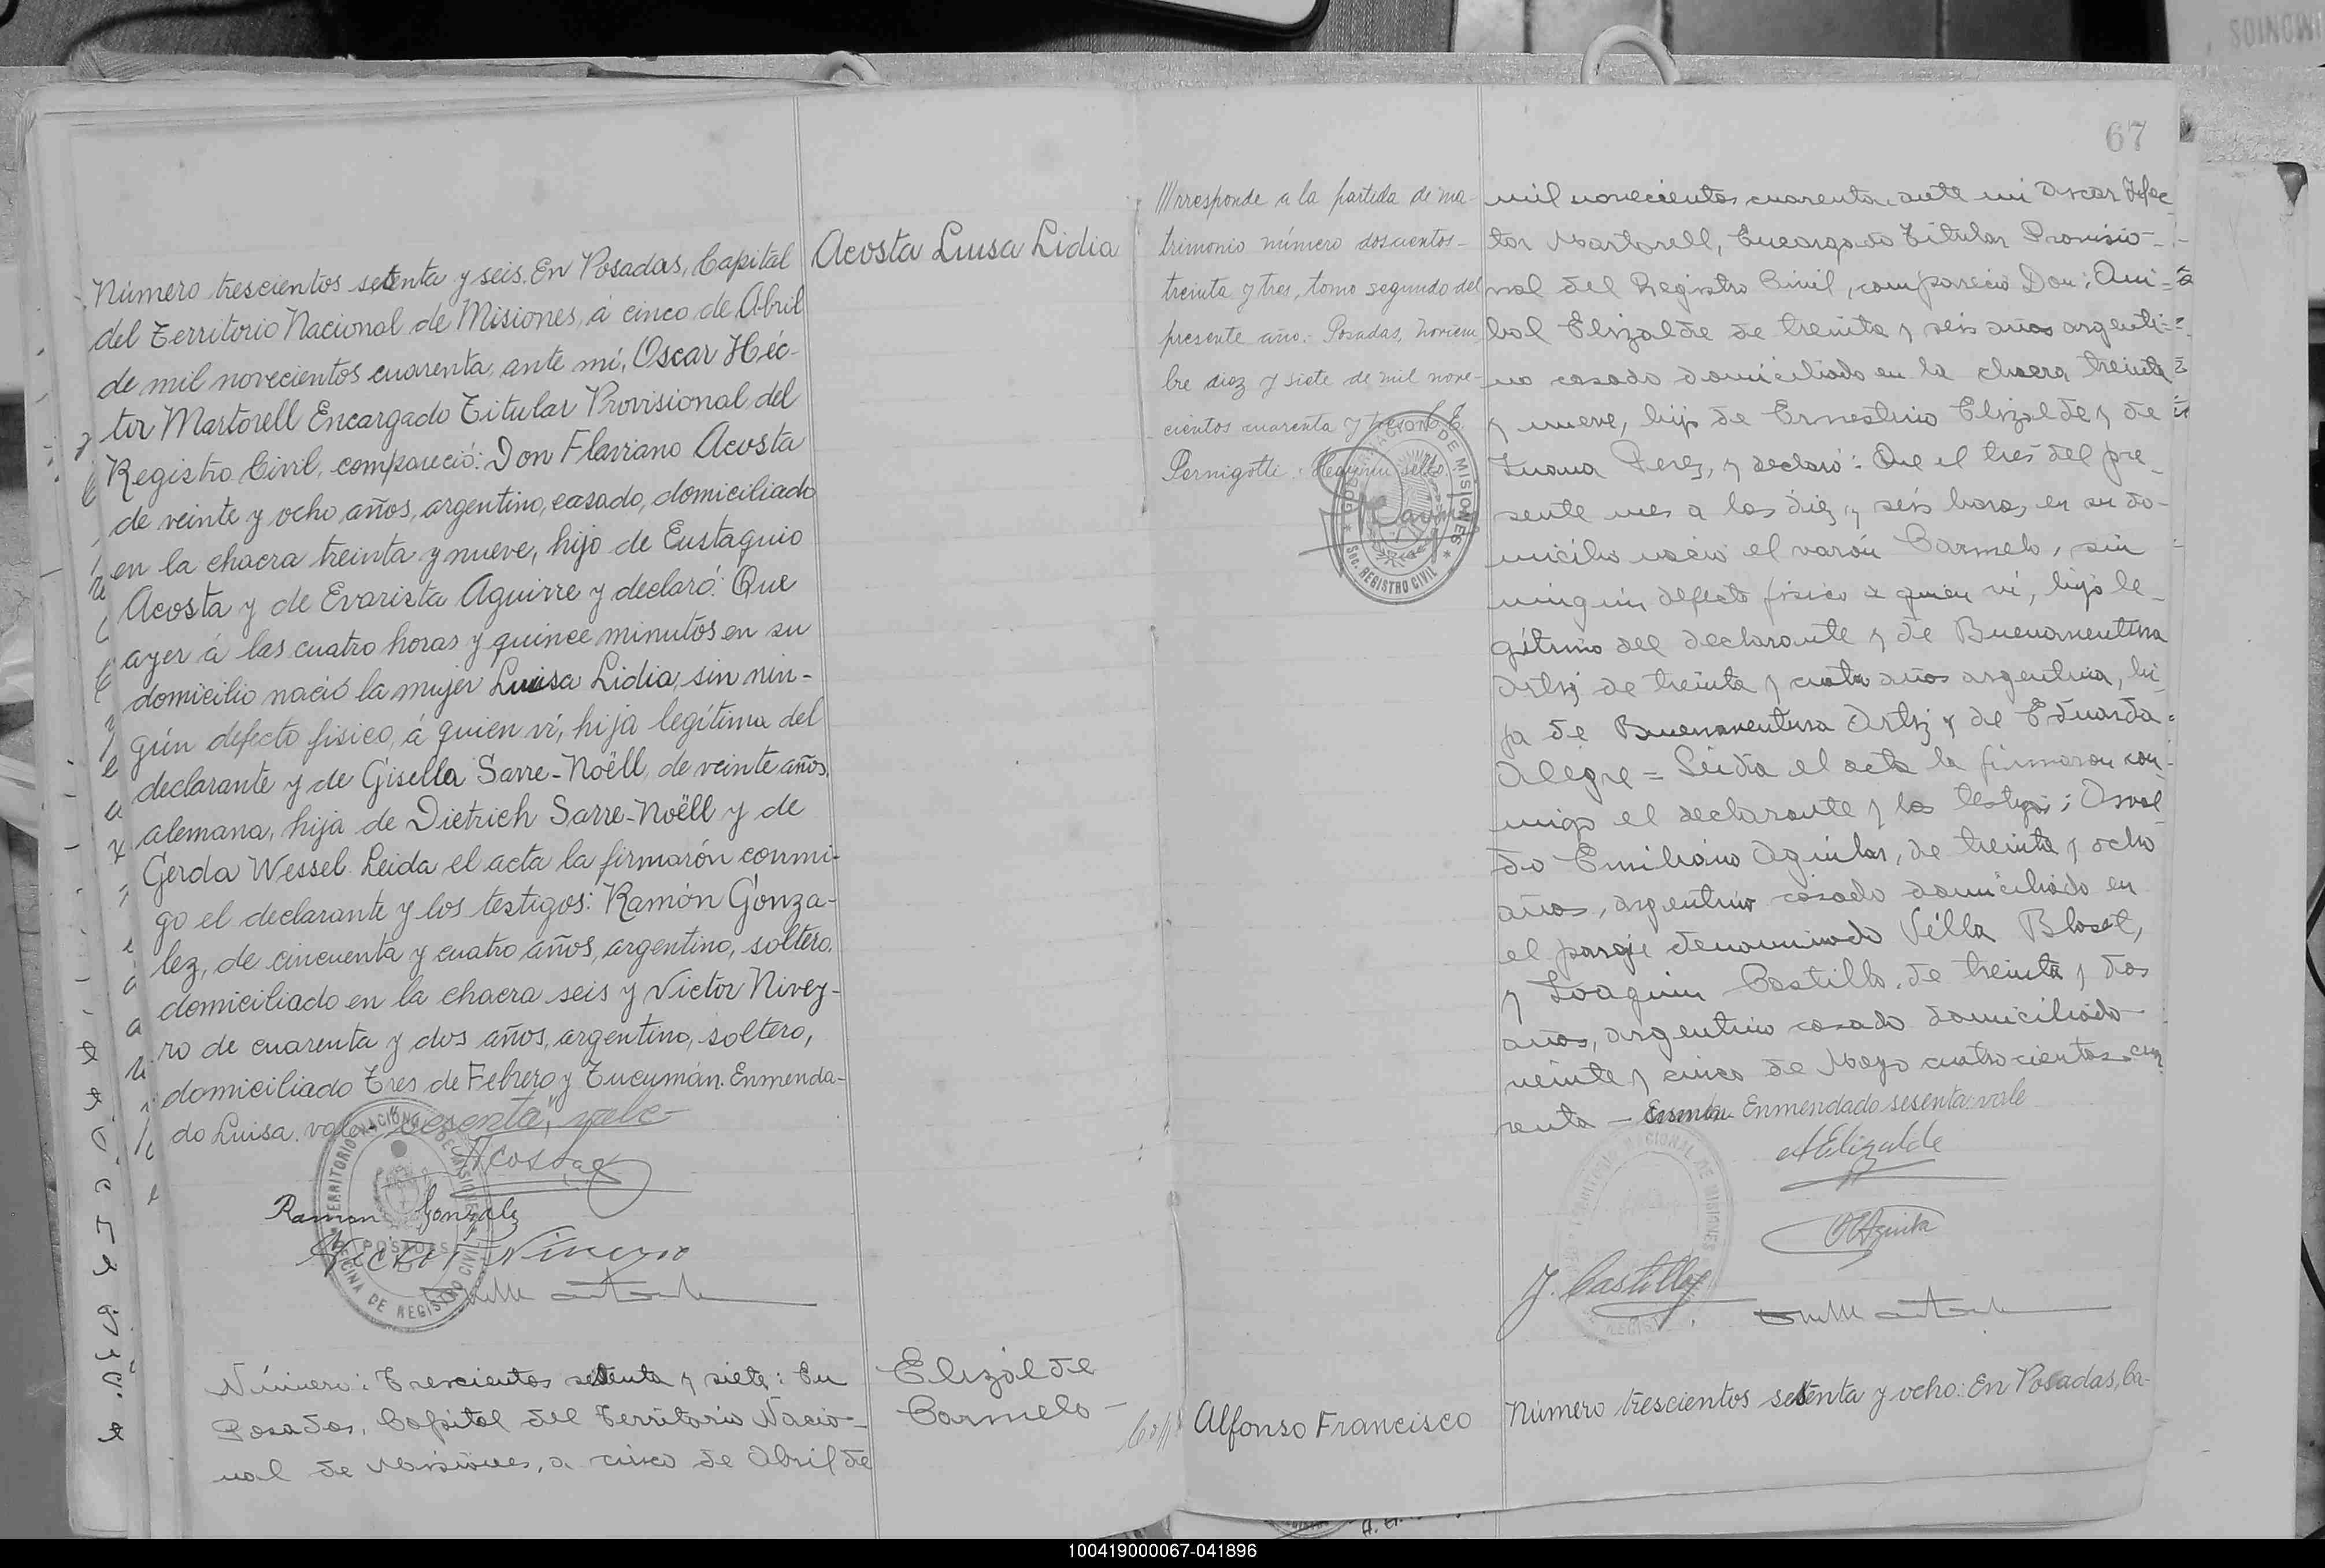 Número trescientos setenta y seis. En Posadas, Capital
del Territorio Nacional de Misiones, á cinco de Abril
de mil novecientos cuarenta, ante mí, Oscar Héc-
tor Martorell Encargado Titular Provisional del
Registro Civil, compareció: Don Flaviano Acosta
de veinte y ocho años, argentino, casado, domiciliado
en la chacra treinta y nueve, hijo de Eustaquio
Acosta y de Evarista Aguirre y declaró: Que
ayer á las cuatro horas y quince minutos en su
domicilio nació la mujer Luisa Lidia, sin nin-
gún defecto fisico, á quien ví, hija legítima del
declarante y de Gisella Sarre-Noëll, de veinte años,
alemana, hija de Dietrich Sarre-Noëll y de
Gerda Wessel. Leida el acta la firmarón conmi-
go el declarante y los testigos: Ramón Gonza-
lez, de cincuenta y cuatro años, argentino, soltero,
domiciliado en la chacra seis y Victor Nivey-
ro de cuarenta y dos años, argentino, soltero,
domiciliado Tres de Febrero y Tucumán. Enmenda-
do Luisa. vale. "sesenta", vale
Acosta
Ramon Gonzalez
Victor Niveyro
TERRITORIO NACIONAL DE MISIONES
POSADAS
OFICINA DE REGISTRO CIVIL
Acosta Luisa Lidia
Número: Trescientos setenta y siete: En
Posadas, Capital del Territorio Nacio-
nal de Misiones, a cinco de Abril de
Elizalde
Carmelo
67
///rresponde a la partida de ma-
trimonio número doscientos-
treinta y tres, tomo segundo del
presente año. Posadas, noviem
bre diez y siete de mil nove-
cientos cuarenta y tres
Pernigotti. Hay un sello.
GOBERNACION DE MISIONES
SEC. REGISTRO CIVIL
mil novecientos cuarenta, ante mi Oscar Hec
tor Martorell, Encargado Titular Provisio-
nal del Registro Civil, compareció Don: Ani-
bal Elizalde de treinta y seis años argenti-
no casado domiciliado en la chacra treinta
y nueve, hijo de Ernestino Elizalde y de
Juana Perez, y declaró: Que el tres del pre-
sente mes a las diez y seis horas, en su do-
micilio nació el varón Carmelo, sin
ningun defecto fisico a quien ví, hijo le-
gítimo del declarante y de Buenaventura
Ortiz de treinta y cuatro años argentina, hi-
ja de Buenaventura Ortiz y de Eduarda
Alegre = Leida el acta la firmaron con-
migo el declarante y los testigos: Osval
do Emiliano Aguilar, de treinta y ocho
años, argentino casado domiciliado en
el paraje denominado Villa Blosset,
y Joaquin Castillo, de treinta y dos
años, argentino casado domiciliado
veinte y cinco de Mayo cuatrocientos cua
renta - Enmendado sesenta: vale
AElizalde
J. Castillo
Alfonso Francisco
Número trescientos setenta y ocho: En Posadas, Ca-
100419000067-041896